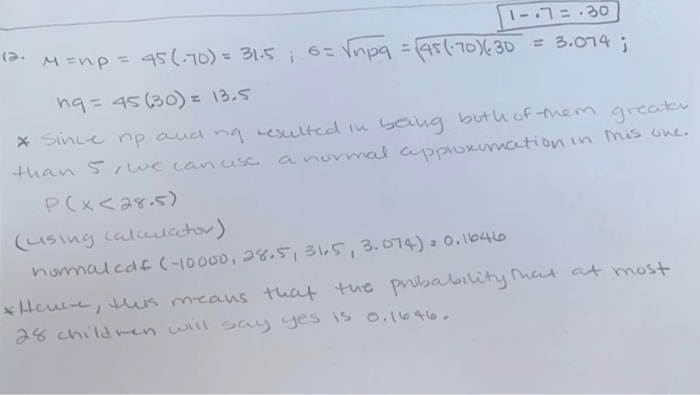 1-.7=.30
12. M=np = 45(.70) = 31.5 ; σ= √npq = √45(.70)(.30 = 3.074 ;
nq = 45(30) = 13.5
* Since np and nq resulted in being both of them greater
than 5, we can use a normal approximation in this one.
P(x<28.5)
(using calculator)
normalcdf (-10000, 28.5, 31.5, 3.074) = 0.1646
* Hence, this means that the probability that at most
28 children will say yes is 0.1646.